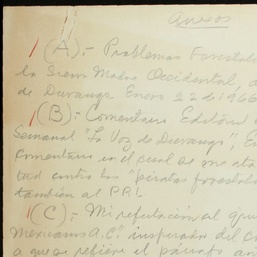 Anexos
1 (A).- Problemas Forestal
la Sierra Madre Occidental,
de Durango Enero 22 de 1966
1 (B).- Comentario Editorial
Semanal "La Voz de Durango", E
Comentario en el cual se me ata
contra los "piratas forestal
también al PRI.
1 (C).- Mi refutación al gru
Mexicano A.C." inspirador del c
a que se refiere el párrafo an